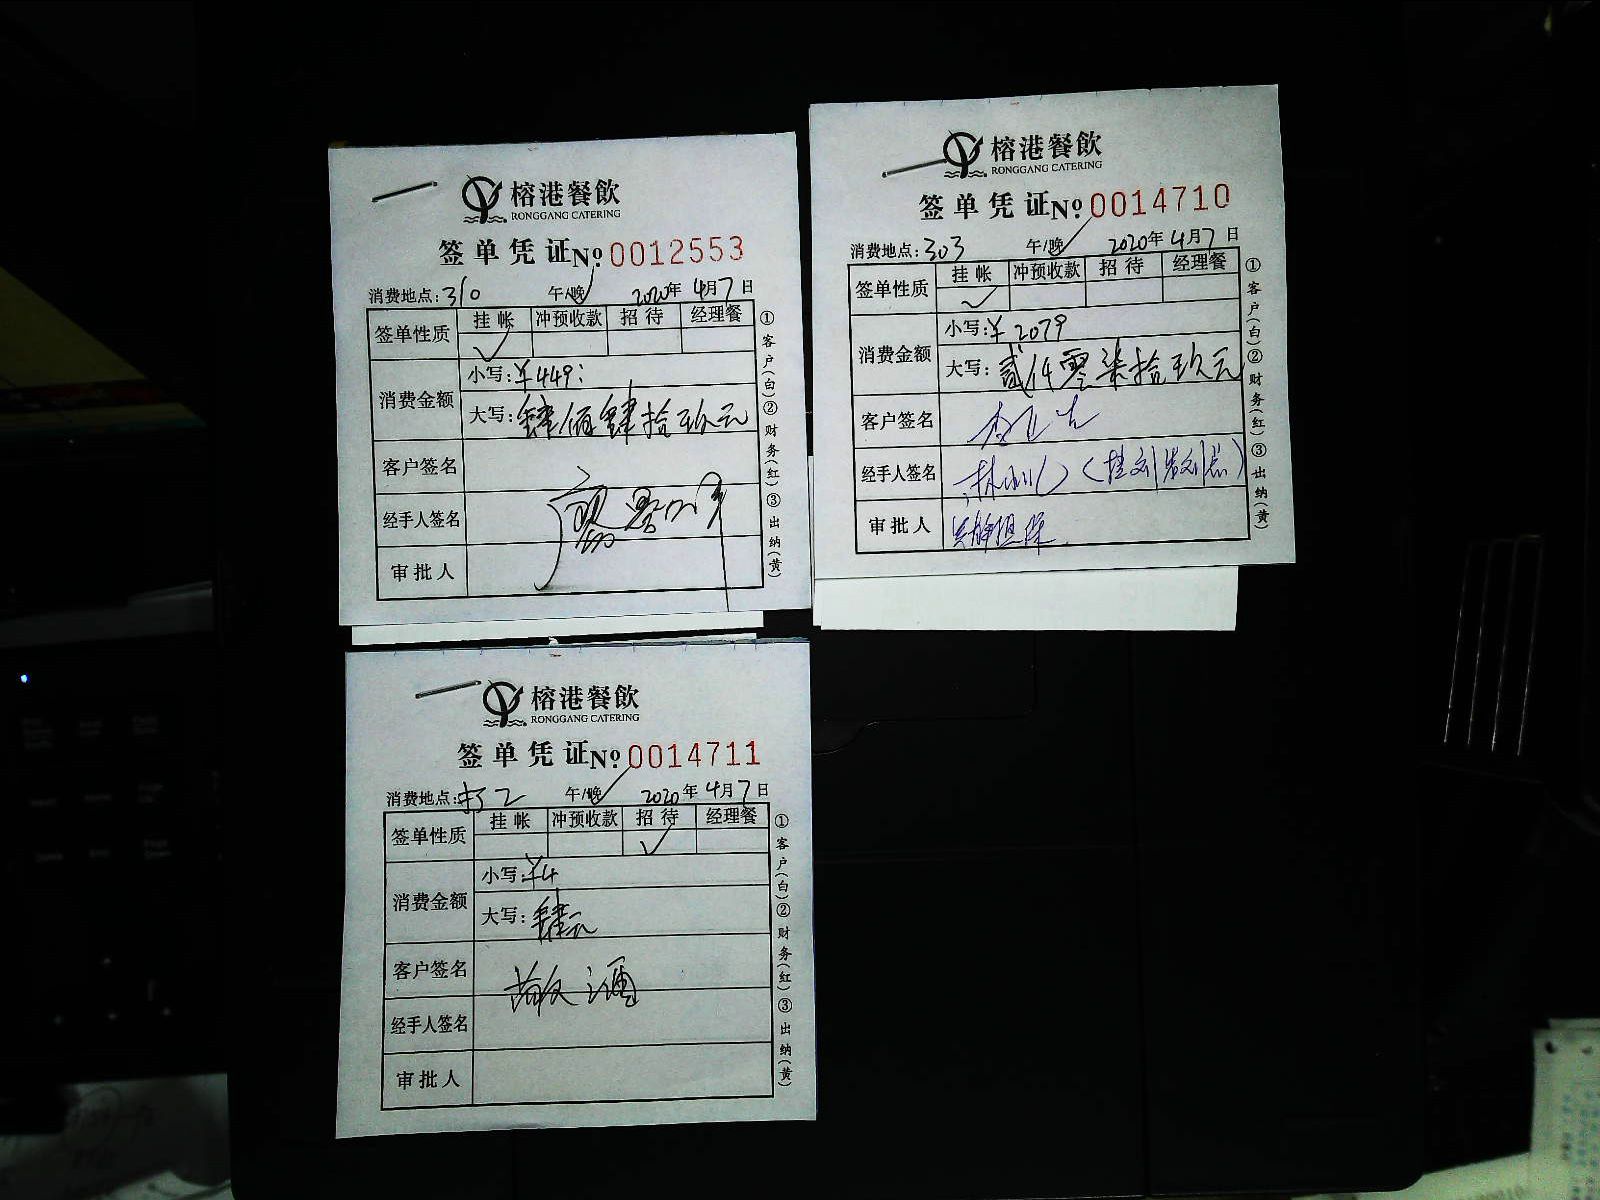 榕港餐飲
RONGGANG CATERING
签单凭证№0012553
消费地点:310 午/晚 2020年4月7日
签单性质 挂帐 冲预收款 招待 经理餐
✓
消费金额
小写:¥449:
大写:肆佰肆拾玖元
客户签名
经手人签名
审批人
①客户(白)②财务(红)③出纳(黄)
榕港餐飲
RONGGANG CATERING
签单凭证№0014710
消费地点:303 午/晚 2020年4月7日
签单性质 挂帐 冲预收款 招待 经理餐
✓
消费金额
小写:¥2079
大写:贰仟零柒拾玖元
客户签名
经手人签名
审批人 担保
①客户(白)②财务(红)③出纳(黄)
榕港餐飲
RONGGANG CATERING
签单凭证№0014711
消费地点: 午/晚 2020年4月7日
签单性质 挂帐 冲预收款 招待 经理餐
✓
消费金额
小写:¥4
大写:肆元
客户签名 敬酒
经手人签名
审批人
①客户(白)②财务(红)③出纳(黄)